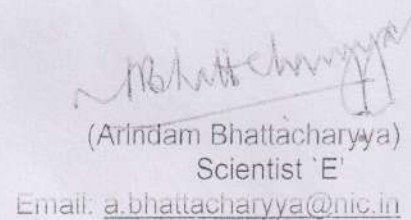 ABhattacharyya
(Arindam Bhattacharyya)
Scientist `E'
Email: a.bhattacharyya@nic.in